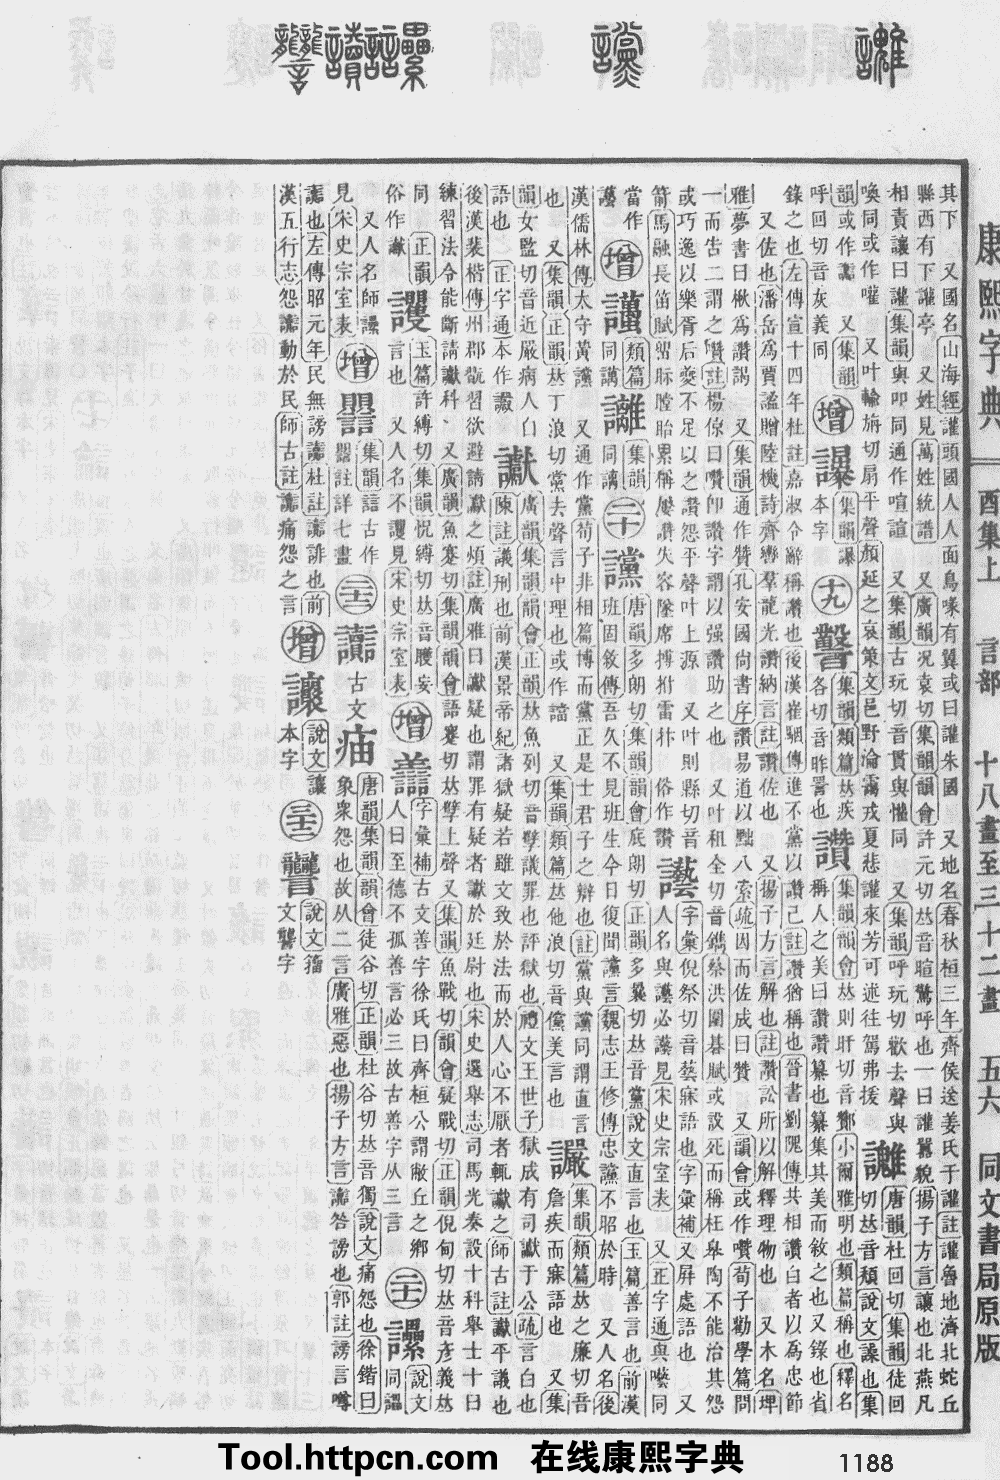 康熙字典 酉集上 言部 十八畫至三十二畫 五六 同文書局原版
其下 又國名山海經讙頭國人人面鳥喙有翼或曰讙朱國 又地名春秋桓三年齊侯送姜氏于讙註讙魯地濟北蛇丘
縣西有下讙亭 又姓見萬姓統譜 又廣韻况袁切集韻韻會許元切𠀤音暄驚呼也一曰讙囂貌揚子方言讓也北燕凡
相責讓曰讙集韻與吅同通作喧諠 又集韻古玩切音貫與懽同 又集韻呼玩切歡去聲與
喚同或作嚾 又叶輸旃切扇平聲顏延之哀策文邑野淪藹戎夏悲讙來芳可述往駕弗援 讙 唐韻杜回切集韻徒回
切𠀤音頹說文譟也集
韻或作 又集韻
呼回切音灰義同 增 𧭤 集韻㬥
本字 十九 集韻類篇𠀤疾
各切音昨詈也 讚 集韻韻會𠀤則肝切音酇小爾雅明也類篇稱也釋名
稱人之美曰讚讚纂也纂集其美而敘之也又錄也省
錄之也左傳宣十四年杜註嘉叔令辭稱讚也後漢崔駰傳進不黨以讚己註讚猶稱也晉書劉隗傳共相讚白者以為忠節
又佐也潘岳為賈謐贈陸機詩齊轡羣龍光讚納言註讚佐也 又揚子方言解也註讚訟所以解釋理物也 又木名埤
雅夢書曰楸為讚謁 又集韻通作贊孔安國尚書序讚易道以黜八索疏因而佐成曰贊 又韻會或作囋荀子勸學篇問
一而告二謂之囋註楊倞曰囋卽讚字謂以强讚助之也 又叶租全切音鐫蔡洪圍碁賦或設死而稱枉皋陶不能治其怨
或巧逸以樂胥后夔不足以之讚怨平聲叶上源 又叶則縣切音
箭馬融長笛賦㽞眎瞠眙累稱屢讚失容墜席搏拊雷抃 俗作讃 字彙倪祭切音藝寐語也字彙補又屛處語也又
人名與䕶必䕶見宋史宗室表 又正字通與囈同
當作
䕶 增 類篇
同講 集韻
同講 二十 讜 唐韻多朗切集韻韻會底朗切正韻多曩切𠀤音黨說文直言也玉篇善言也前漢
班固敘傳吾久不見班生今日復聞讜言魏志王修傳忠讜不昭於時 又人名後
漢儒林傳太守黃讜 又通作黨荀子非相篇博而黨正是士君子之辯也註黨與讜同謂直言
也 又集韻正韻𠀤丁浪切當去聲言中理也或作譡 又集韻類篇𠀤他浪切音儻美言也 讝 集韻類篇𠀤之廉切音
詹疾而寐語也 又集
韻女監切音近嚴病人自
語也 正字通本作讝 讞 廣韻集韻韻會正韻𠀤魚列切音孼議罪也評獄也禮文王世子獄成有司讞于公疏言白也
陳註議刑也前漢景帝紀諸獄疑若雖文致於法而於人心不厭者輒讞之師古註讞平議也
後漢裴楷傳州郡翫習欲避請讞之煩註廣雅曰讞疑也謂罪有疑者讞於廷尉也宋史選舉志司馬光奏設十科舉士十曰
練習法令能斷請讞科 又廣韻魚蹇切集韻韻會語蹇切𠀤孽上聲又集韻魚戰切韻會疑戰切正韻倪甸切𠀤音彥義𠀤
同 正韻
俗作 玉篇許縛切集韻怳縛切𠀤音矍妄
言也 又人名不見宋史宗室表 增 譱 字彙補古文善字徐氏曰齊桓公謂敝丘之鄉
人曰至德不孤善言必三故古善字从三言 二十一 說文
同讄
又人名師
見宋史宗室表 增 集韻話古作
註詳七畫 二十二 讟 古文 唐韻集韻韻會徒谷切正韻杜谷切𠀤音獨說文痛怨也徐鍇曰
象衆怨也故从二言廣雅惡也揚子方言讟咎謗也郭註謗言噂
讟也左傳昭元年民無謗讟杜註讟誹也前
漢五行志怨讟動於民師古註讟痛怨之言 增 說文讓
本字 三十二 說文籀
文讋字
Tool.httpcn.com 在线康熙字典 1188